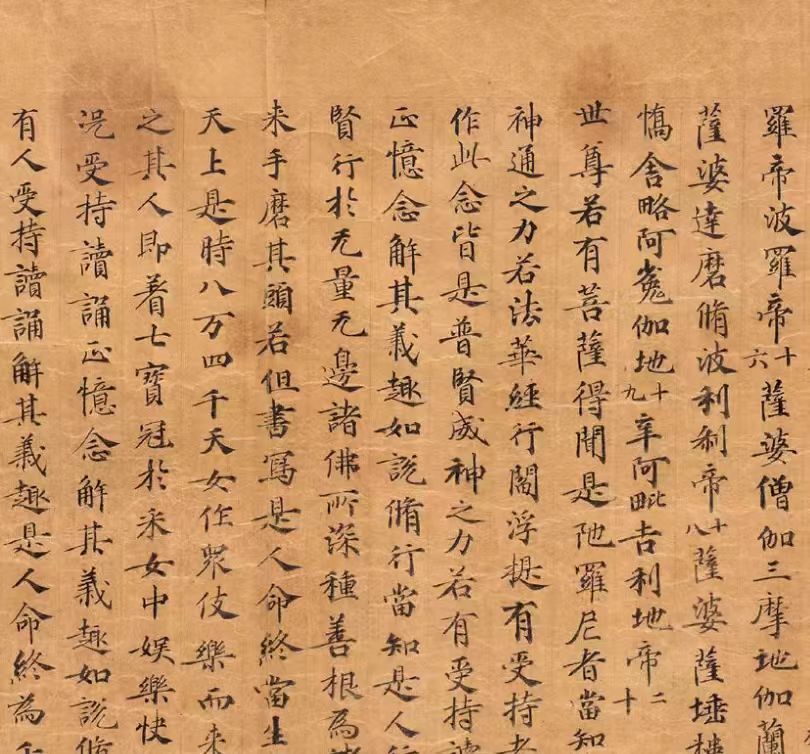 羅帝波羅帝十六薩婆僧伽三摩地伽蘭
薩婆達磨脩波利剎帝十八薩婆薩埵樓
憍舍略阿㝹伽地十九辛阿毗吉利地帝二十
世尊若有菩薩得聞是陁羅尼者當知
神通之力若法華經行閻浮提有受持者
作此念皆是普賢威神之力若有受持讀
正憶念解其義趣如說脩行當知是人行
賢行於无量无邊諸佛所深種善根為諸
来手磨其頭若但書寫是人命終當生
天上是時八万四千天女作眾伎樂而来
之其人即着七寶冠於采女中娛樂快
况受持讀誦正憶念解其義趣如說脩
有人受持讀誦解其義趣是人命終為千